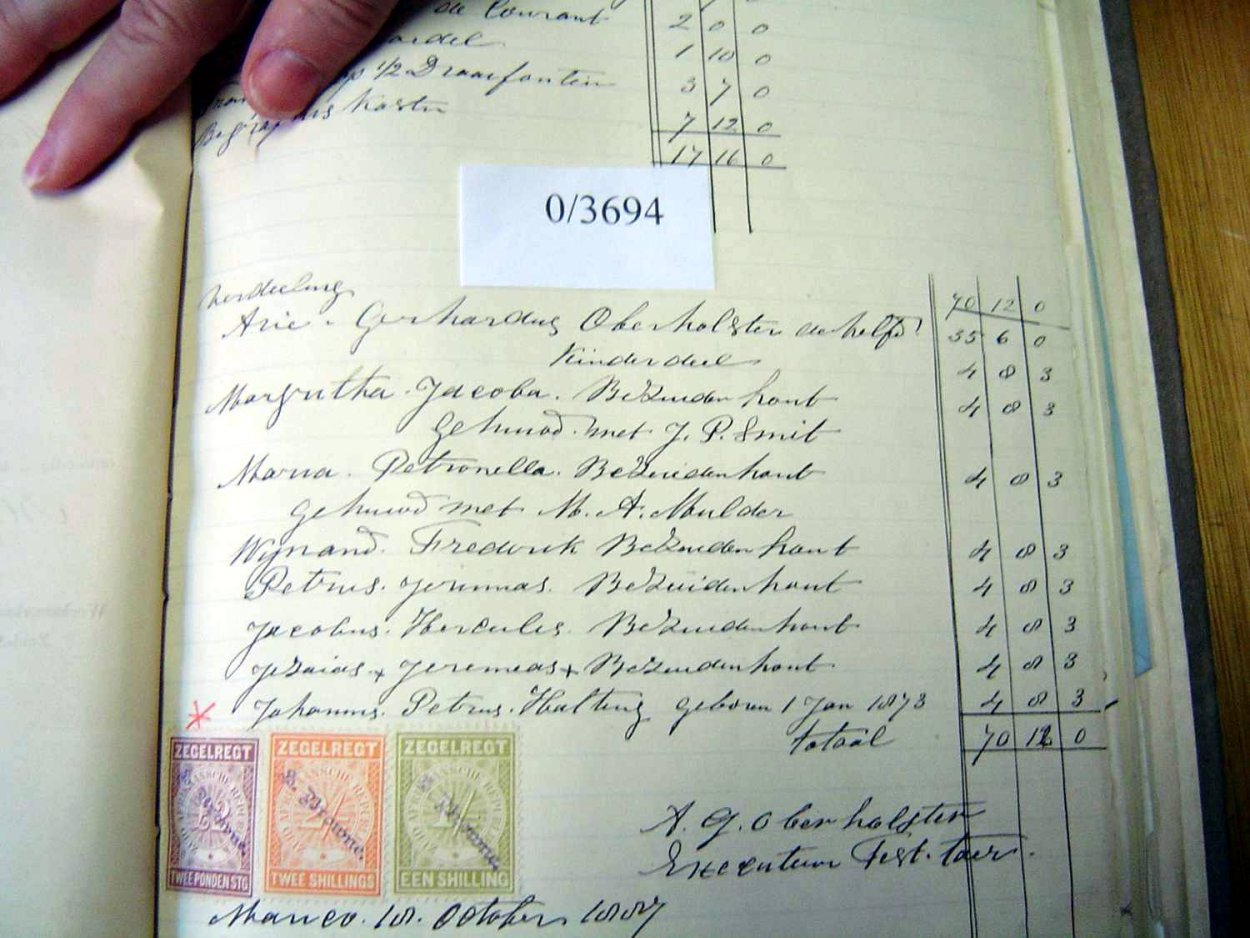 de Courant 2 0 0
1 10 0
op 1/2 Draaifontein 3 7 0
Begrafenis kosten 7 12 0
17 16 0
0/3694
Verdeeling 70 12 0
Arie Gerhardus Oberholster de helft 35 6 0
Kinderdeel 4 8 3
Margretha Jacoba Bezuidenhout 4 8 3
gehuwd met J. P. Smit
Maria Petronella Bezuidenhout 4 8 3
gehuwd met M. A. Mulder
Wijnand Frederik Bezuidenhout 4 8 3
Petrus Jeremias Bezuidenhout 4 8 3
Jacobus Hercules Bezuidenhout 4 8 3
Jezaias x Jeremeas x Bezuidenhout 4 8 3
Johannes Petrus Halting geboren 1 Jan 1873 4 8 3
totaal 70 12 0
ZEGELREGT ZEGELREGT ZEGELREGT
TWEE PONDEN STG TWEE SHILLINGS EEN SHILLING
A. G. Oberholster
Executeur Test. tair.
Marico 18 October 1887